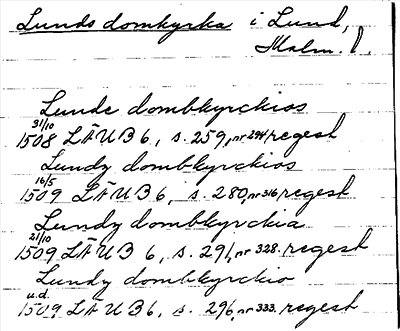 Lunds domkyrka i Lund,
Malm. l.
Lunde dombkyrckios
31/10
1508 LÄUB 6, s. 259, nr 294, regest
Lundy dombkyrckios
16/5
1509 LÄUB 6, s. 280, nr 316, regest
Lundy dombkyrckia
21/10
1509 LÄUB 6, s. 291, nr 328. regest
Lundy dombkyrckio
u.d.
1509 LÄUB 6, s. 296, nr 333. regest